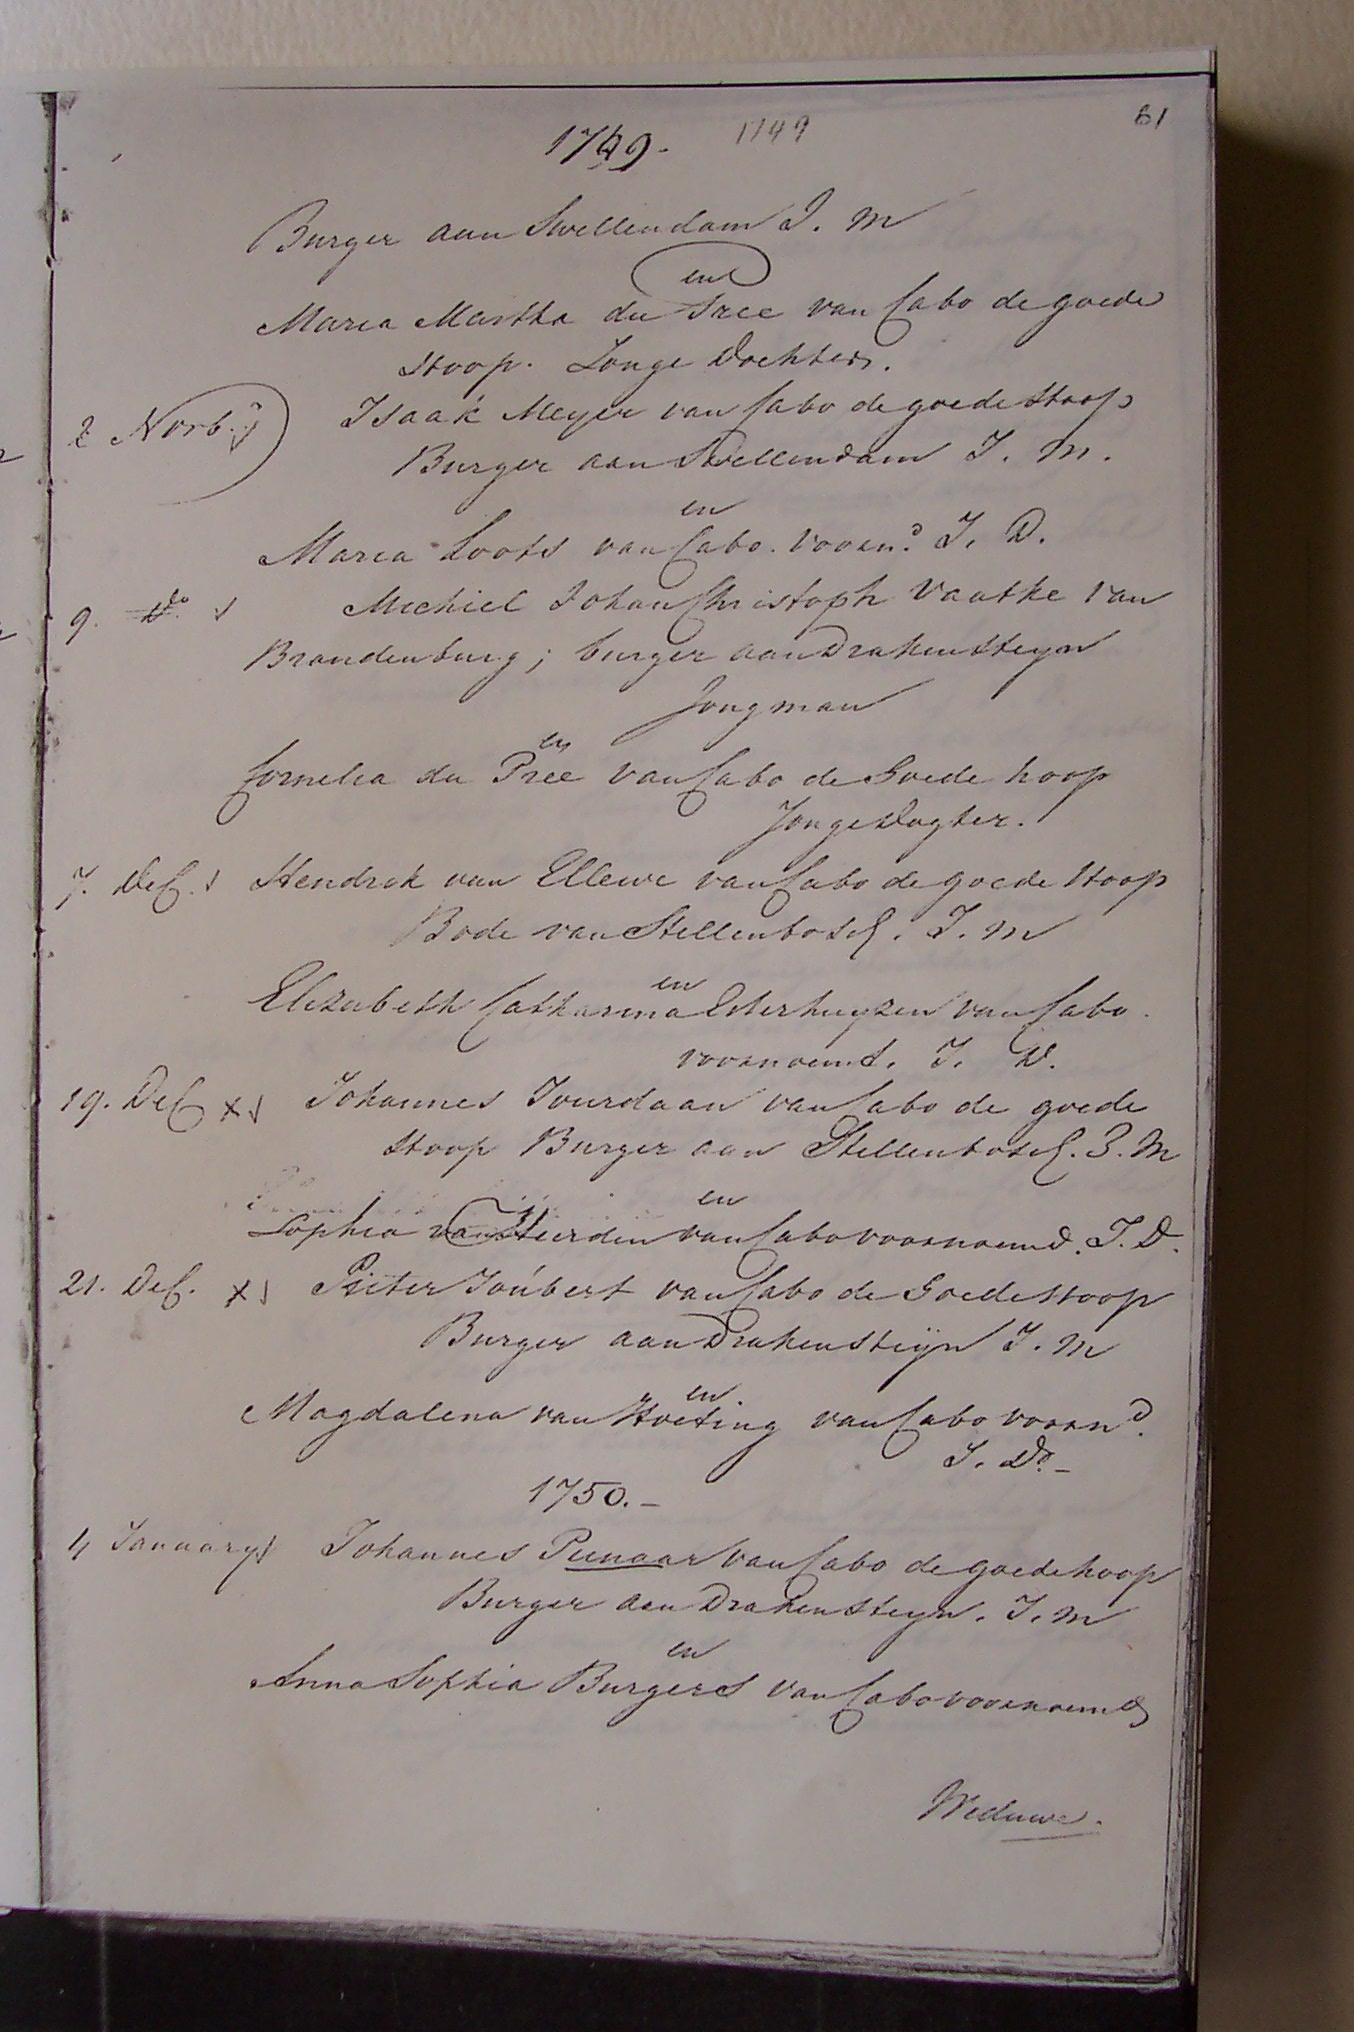 61
1749. 1749
Burger aan Swellendam J. M
en
Maria Martha du Pree van Cabo de goede
Hoop. Jonge Dochter.
2 Novb.r Isaak Meyer van Cabo de goede Hoop
Burger aan Swellendam J. M.
en
Maria Loots van Cabo. voorn.d J. D.
9. do Michiel Johan Christoph Vaatke van
Brandenburg; burger aan Drakensteyn
Jongman
en
Cornelia du Pree van Cabo de Goede hoop
Jonge Dogter.
7. Dec. Hendrik van Ellewe van Cabo de goede Hoop
Bode van Stellenbosch. J. M
en
Elizabeth Catharina Esterhuyzen van Cabo
voornoemt. J. D.
19. Dec x Johannes Jourdaan van Cabo de goede
Hoop Burger aan Stellenbosch. J. M
en
Sophia van Heerden van Cabo voornoemd. J. D.
21. Dec. x Pieter Joubert van Cabo de Goede Hoop
Burger aan Drakensteyn J. M
en
Magdalena van Hoeting van Cabo voorn.d
J. Do. –
1750. –
4 January Johannes Pienaar van Cabo de goede hoop
Burger aan Drakensteyn. J. M
en
Anna Sophia Burgers van Cabo voornoemd
Weduwe.